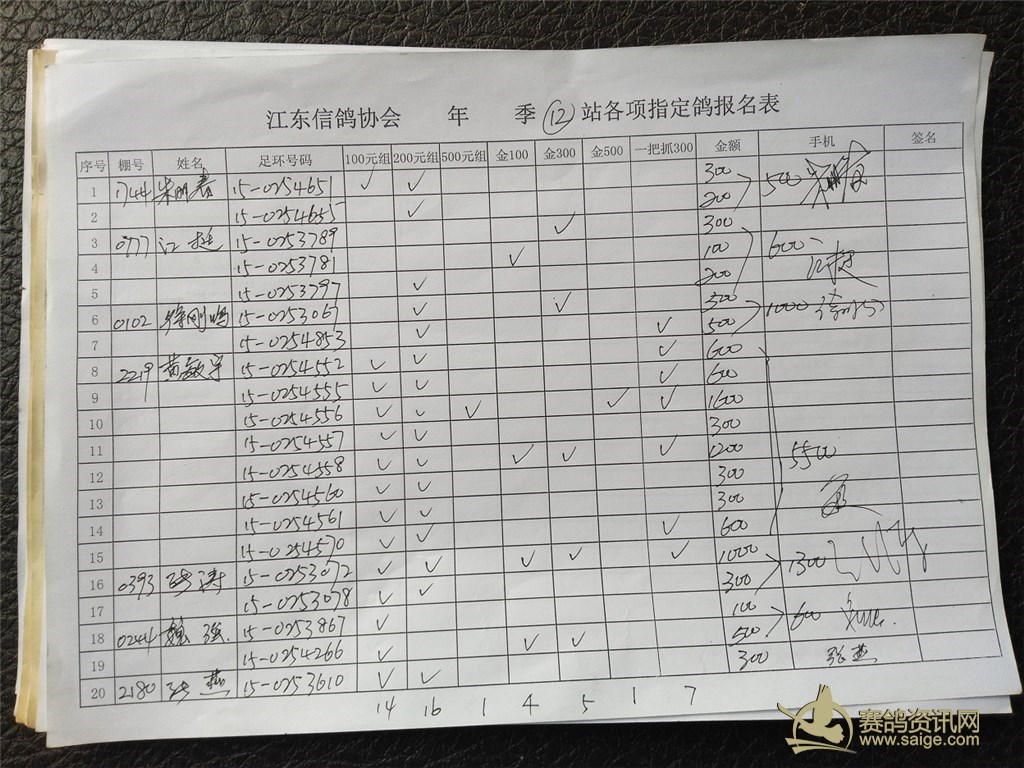 江东信鸽协会 年 季 ⑫ 站各项指定鸽报名表
序号 棚号 姓名 足环号码 100元组 200元组 500元组 金100 金300 金500 一把抓300 金额 手机 签名
1 1744 15-0254651 ✓ ✓ 300 500
2 15-0254655 ✓ 200
3 0977 江挺 15-0253789 ✓ 300 600
4 15-0253781 ✓ 100 江挺
5 15-0253797 ✓ 200
6 0102 徐刚鸣 15-0253067 ✓ ✓ 500 1000
7 15-0254853 ✓ ✓ 500
8 2219 黄敏宇 15-0254552 ✓ ✓ ✓ 600
9 15-0254555 ✓ ✓ ✓ 600
10 15-0254556 ✓ ✓ ✓ ✓ ✓ 1600
11 15-0254557 ✓ ✓ 300
12 15-0254558 ✓ ✓ ✓ ✓ ✓ 1200 5500
13 15-0254560 ✓ ✓ 300
14 15-0254561 ✓ ✓ 300
15 15-0254570 ✓ ✓ ✓ 600
16 0393 15-0253072 ✓ ✓ ✓ ✓ ✓ 1000 1300
17 15-0253078 ✓ ✓ 300
18 0244 魏强 15-0253867 ✓ 100 600
19 15-0254266 ✓ ✓ ✓ 500
20 2180 张燕 15-0253610 ✓ ✓ 300 张燕
14 16 1 4 5 1 7
赛鸽资讯网
www.saige.com